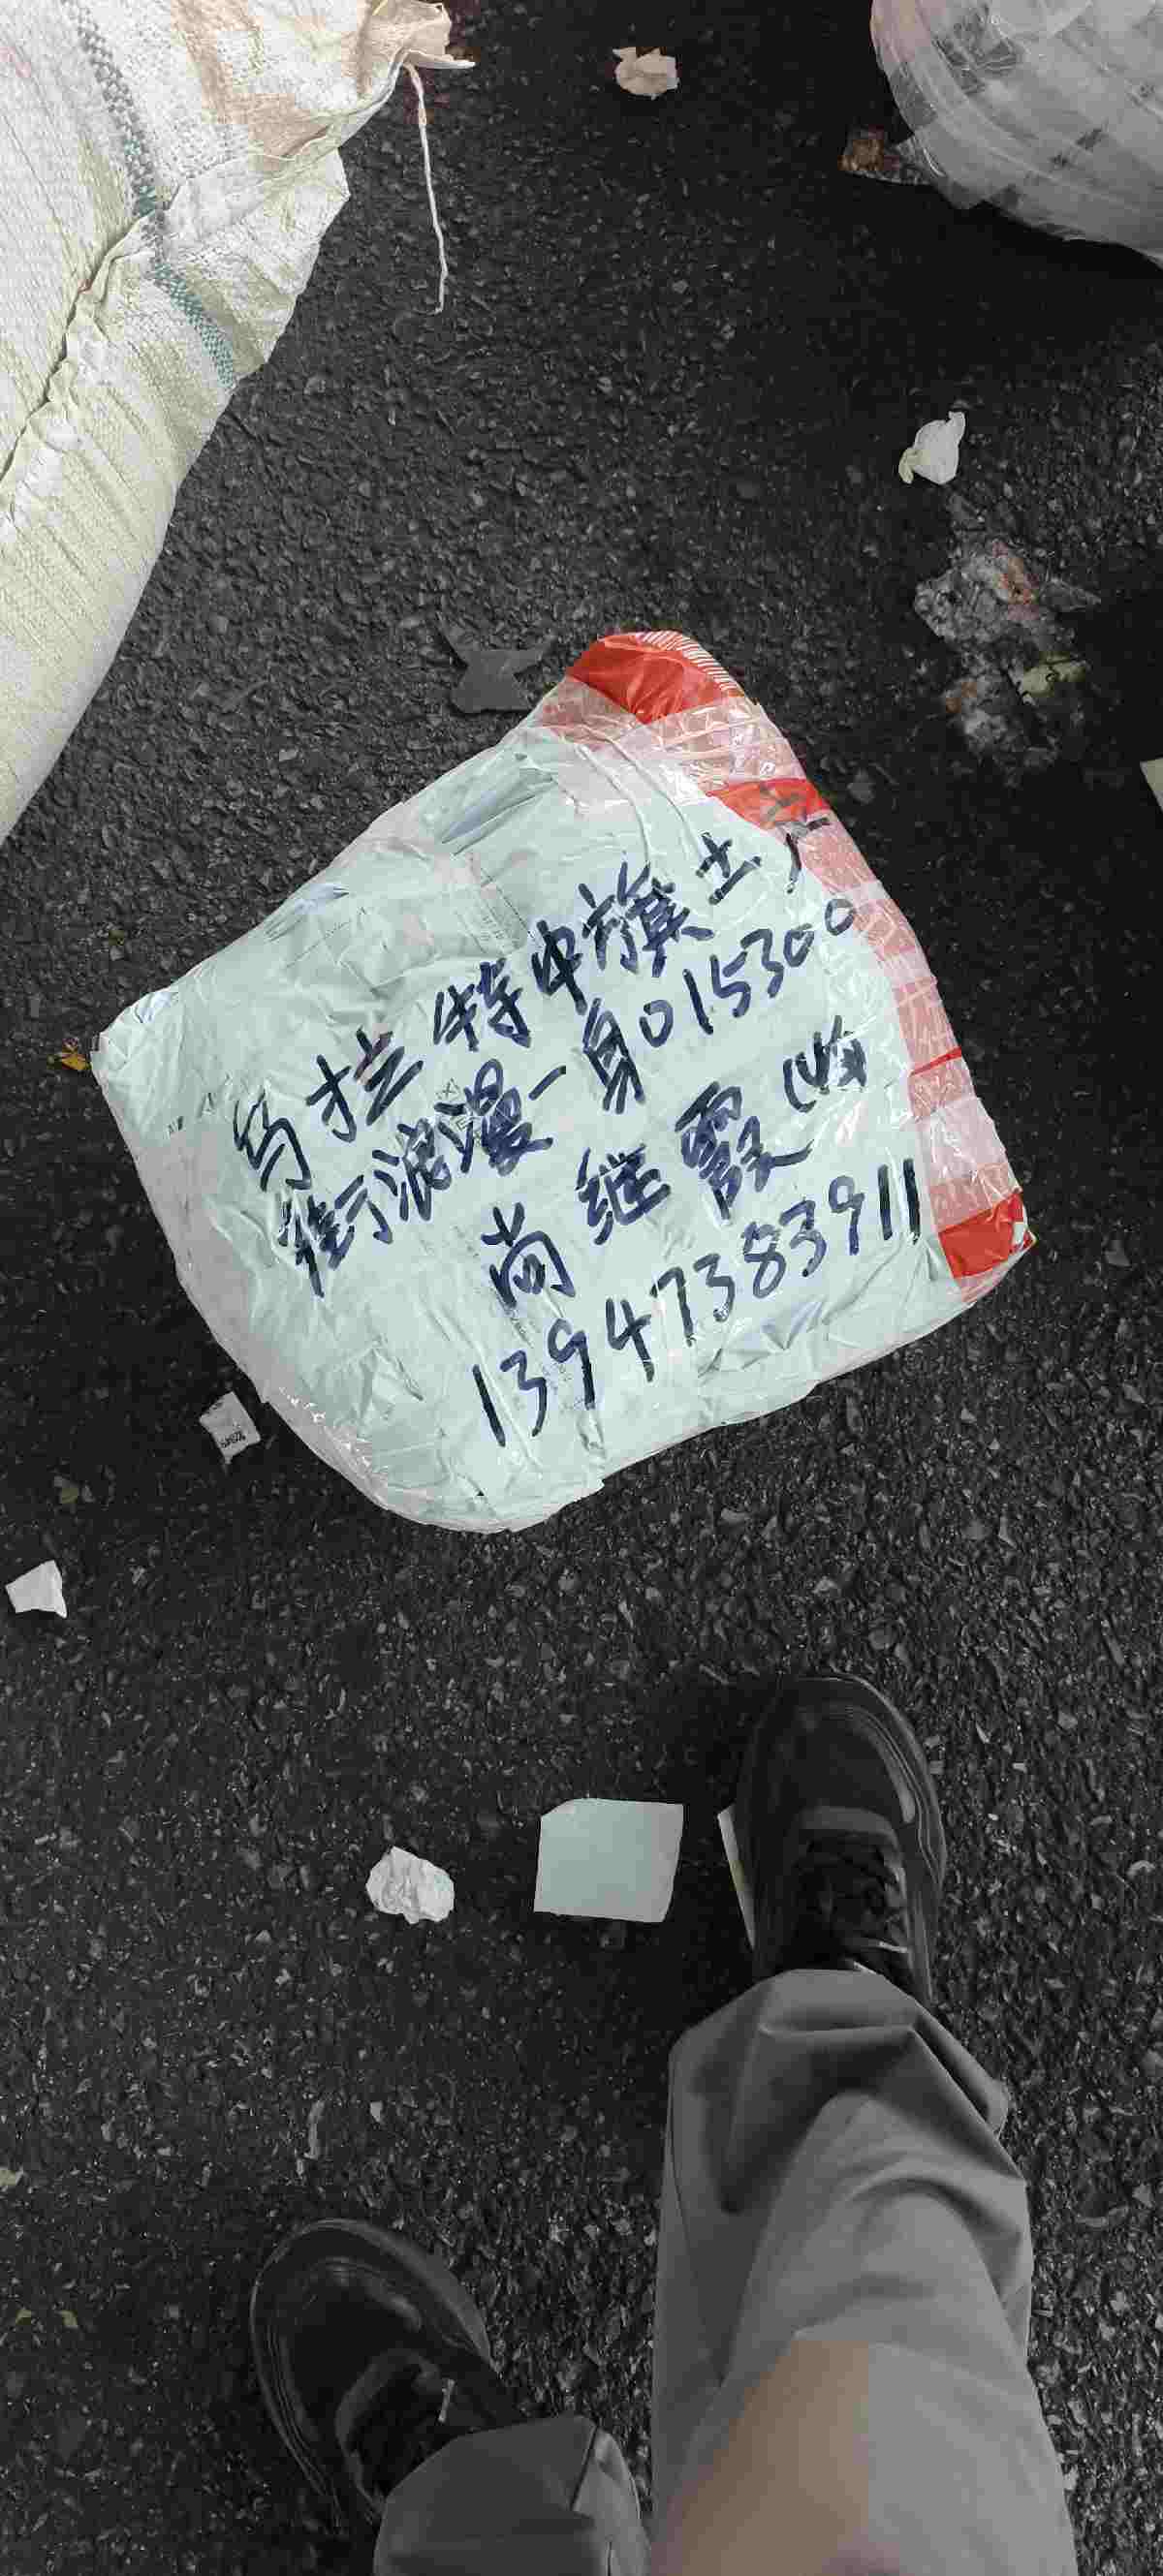 乌拉特中旗
街浪漫一身015300
尚继霞(收
13947383911